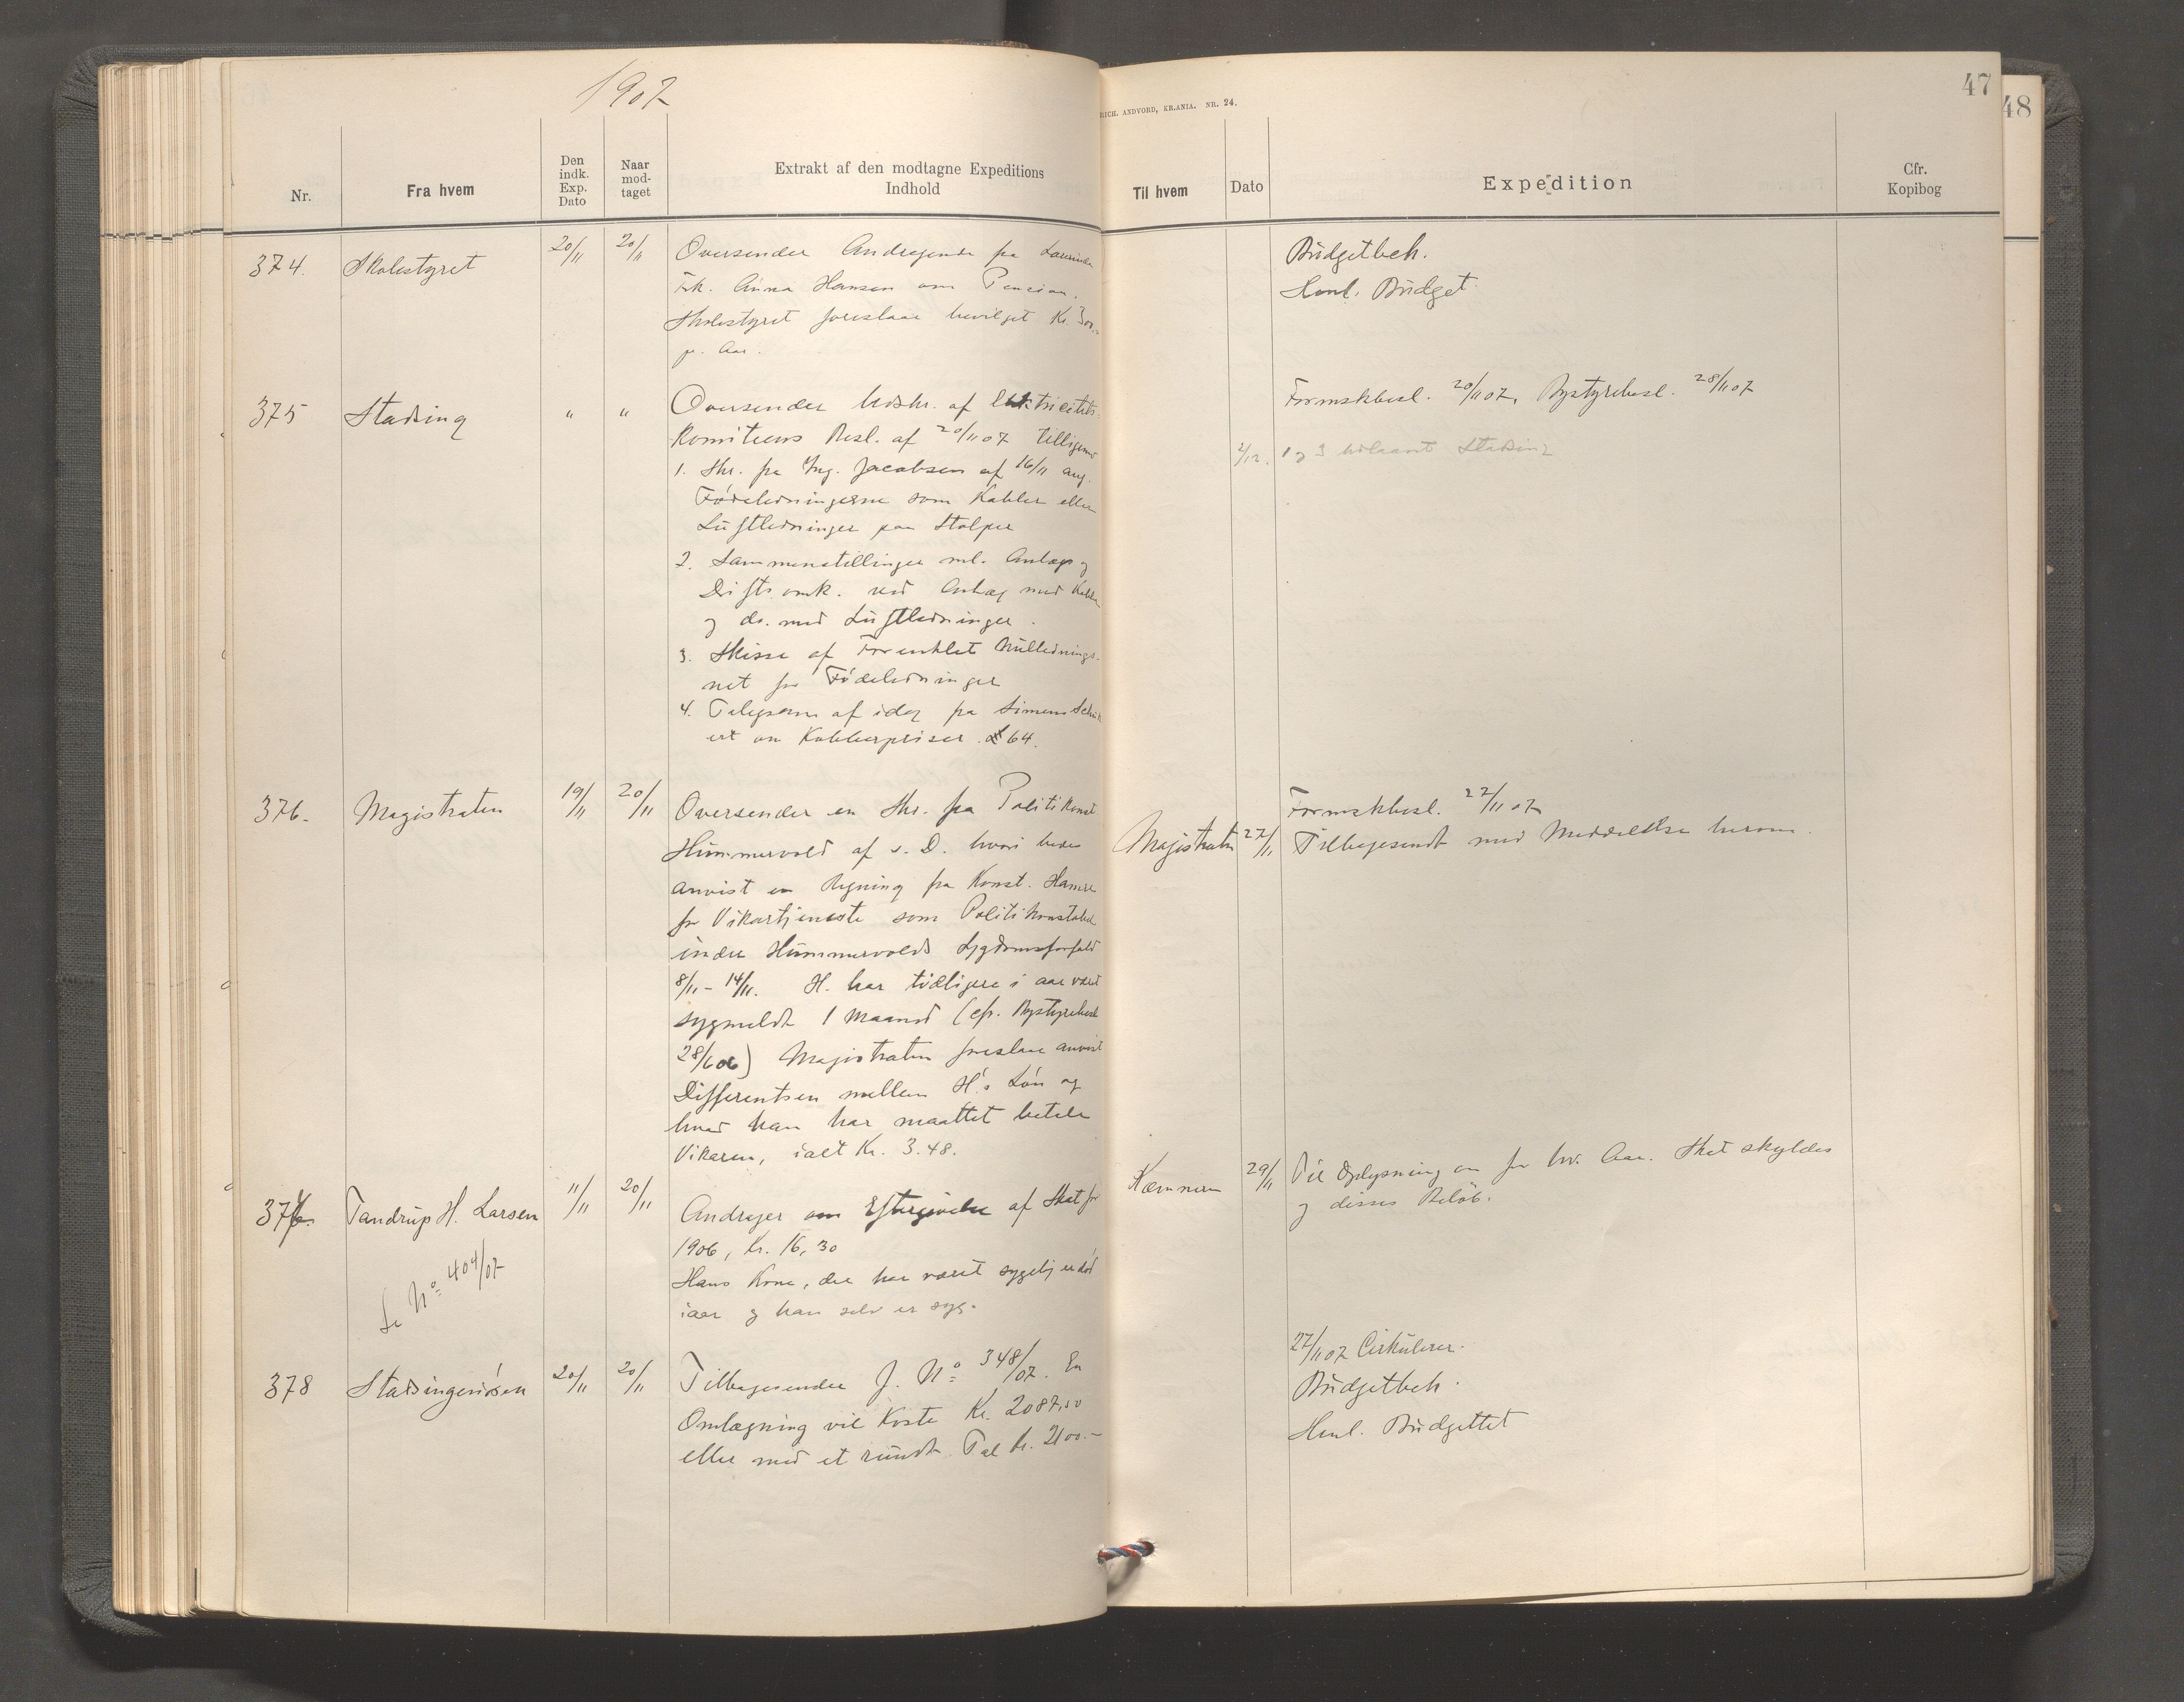 1907
Nr.
Fra hvem
Den indk. Exp. Dato
Naar mod- taget
Extrakt af den modtagne Expeditions
Indhold
374.
Skolestyret
20/11
20/11
Oversender Andragende fra Lærerinde
Frk. Anna Hansen om Pension.
Skolestyret foreslaar bevilget Kr. 300.-
pr. Aar.
375
Stadsing
"
"
Oversender Udskr. af Elektricitets-
komiteens Besl. af 20/11 07 tilligemed
1. Skr. fra Ing. Jacobsen af 16/11 ang.
Fødeledningerne som Kabler eller
Luftledninger paa Stolper
2. Sammenstillinger ml. Anlægs og
Driftsomk. ved Anlæg med Kabler
og do. med Luftledninger.
3. Skisse af Forenklet Nulledning
net for Fødeledninger
4. Telegram af idag fra Simens Schuk
ert om Kobberpriser £ 64.
376.
Magistraten
19/11
20/11
Oversender en Skr. fra Politikonst
Hummervold af s. D. hvori bedes
anvist en Regning fra Konst. Hansen
for Vikartjeneste som Politikonstabel
under Hummervolds Sygdomsforfald
8/11 - 14/11. H. har tidligere i aar været
sygmeldt 1 Maaned (cfr. Bystyrebesl
28/6 06) Magistraten foreslaar anvist
Differentsen mellem H's Løn og
hvad han har maattet betale
Vikaren, ialt Kr. 3.48.
377
Tandrup H. Larsen
11/11
20/11
Andrager om Eftergivelse af Skat for
1906, Kr. 16,30
Hans Kone, der har været sygelig er død
iaar og han selv er syg.
Se No 404/07
378
Stadsingeniøren
20/11
20/11
Tilbagesender J. No 348/07. En
Omlægning vil koste Kr. 2087,50
eller med et rundt Tal Kr. 2100.-
RICH. ANDVORD, KR.ANIA. NR. 24.
47
48
Til hvem
Dato
Expedition
Cfr.
Kopibog
Budgetbeh.
Henl. Budget
Formskbesl. 20/11 07, Bystyrebesl. 28/11 07
2/12. 1 og 3 utlaant Stadsing
Formskbesl. 27/11 07
Magistraten 27/11 Tilbagesendt med Meddelelse herom.
Kæmneren 29/11 Til Oplysning om for hv. Aar. Skat skyldes
og disses Beløb.
27/11 07 Cirkulerer.
Budgetbeh.
Henl. Budgettet